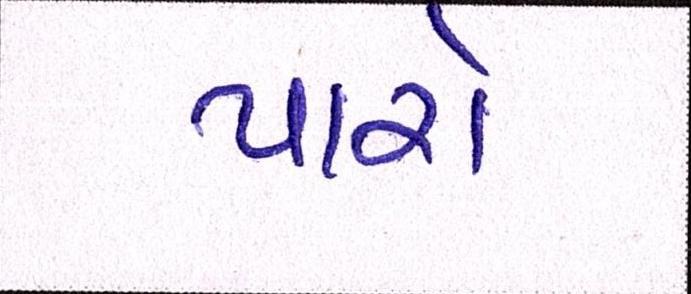 પારો